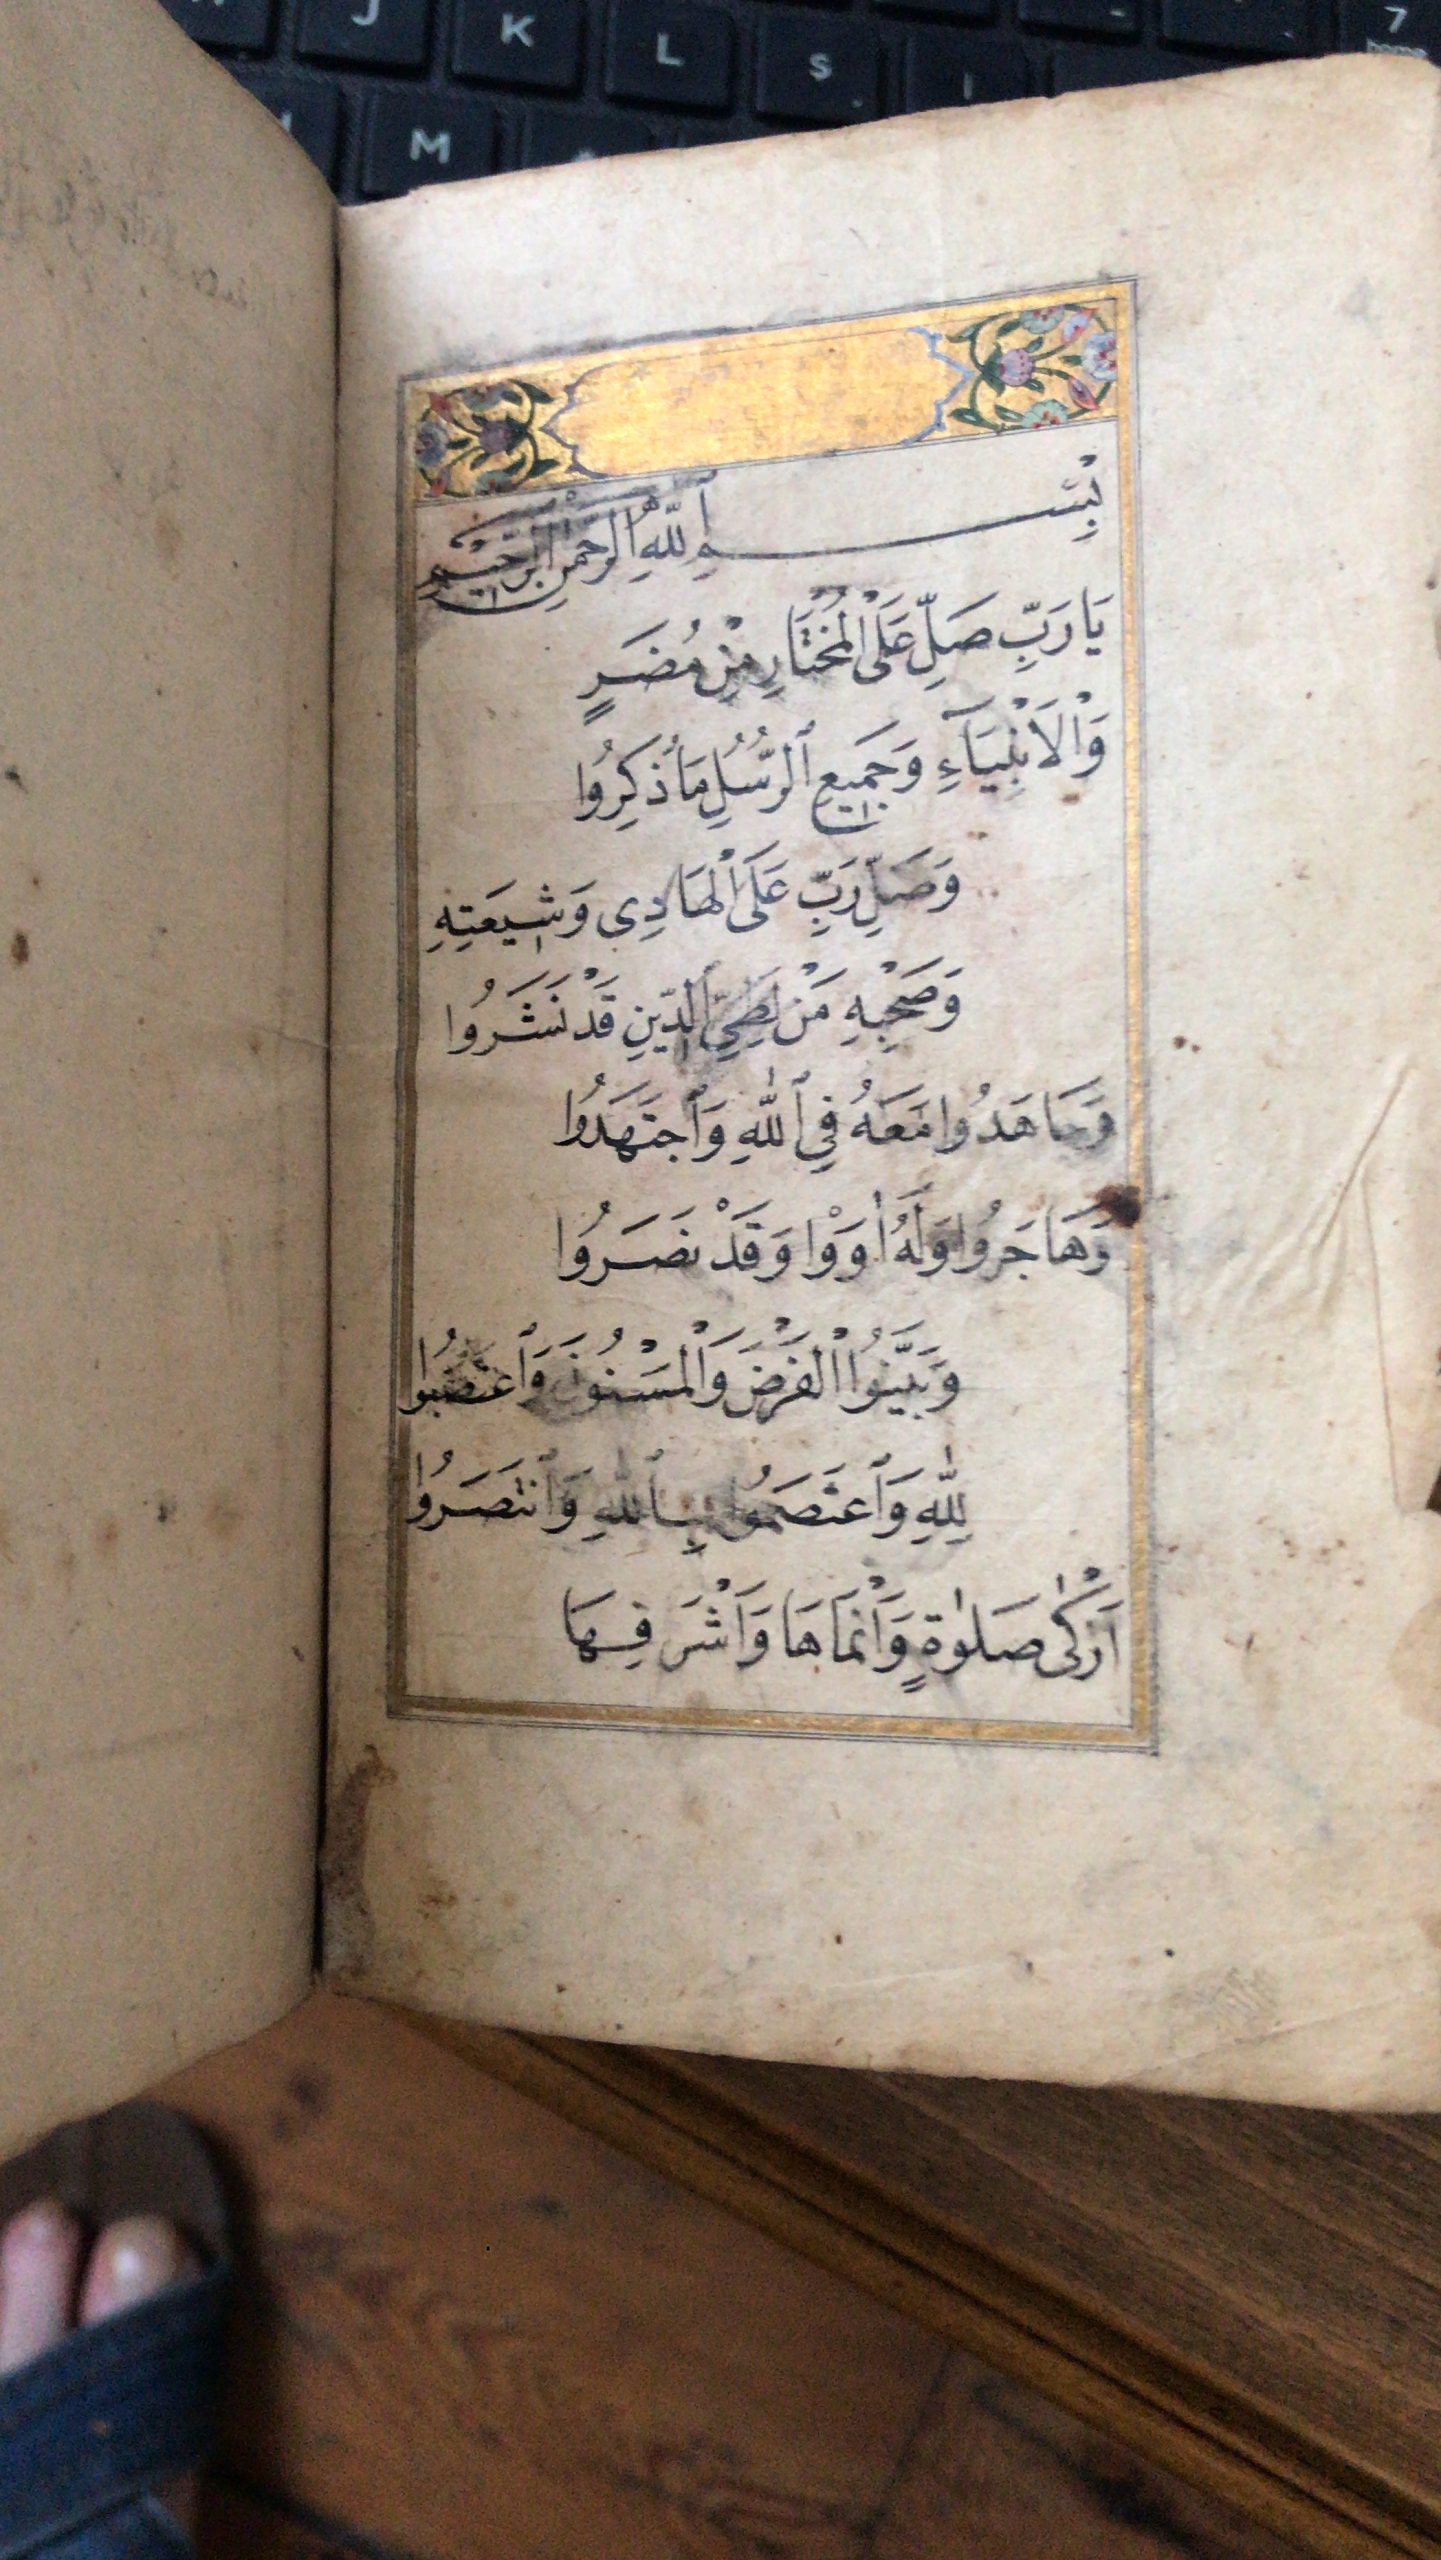 بِسْمِ اللّٰهِ الرَّحْمٰنِ الرَّحِيمِ
يَا رَبِّ صَلِّ عَلَى الْمُخْتَارِ مِنْ مُضَرٍ
وَالْاَنْبِيَآءِ وَجَمِيعِ الرُّسُلِ مَا ذُكِرُوا
وَصَلِّ رَبِّ عَلَى الْهَادِى وَشِيعَتِهِ
وَصَحْبِهِ مَنْ لِطَيِّ الدِّينِ قَدْ نَشَرُوا
وَجَاهَدُوا مَعَهُ فِي اللّٰهِ وَاجْتَهَدُوا
وَهَاجَرُوا وَلَهُ اٰوَوْا وَقَدْ نَصَرُوا
وَبَيَّنُوا الْفَرْضَ وَالْمَسْنُونَ وَاعْتَصَبُوا
لِلّٰهِ وَاعْتَصَمُوا بِاللّٰهِ وَانْتَصَرُوا
اَزْكٰى صَلٰوةٍ وَاَنْمَاهَا وَاَشْرَفِهَا
J K L S 7
home
M